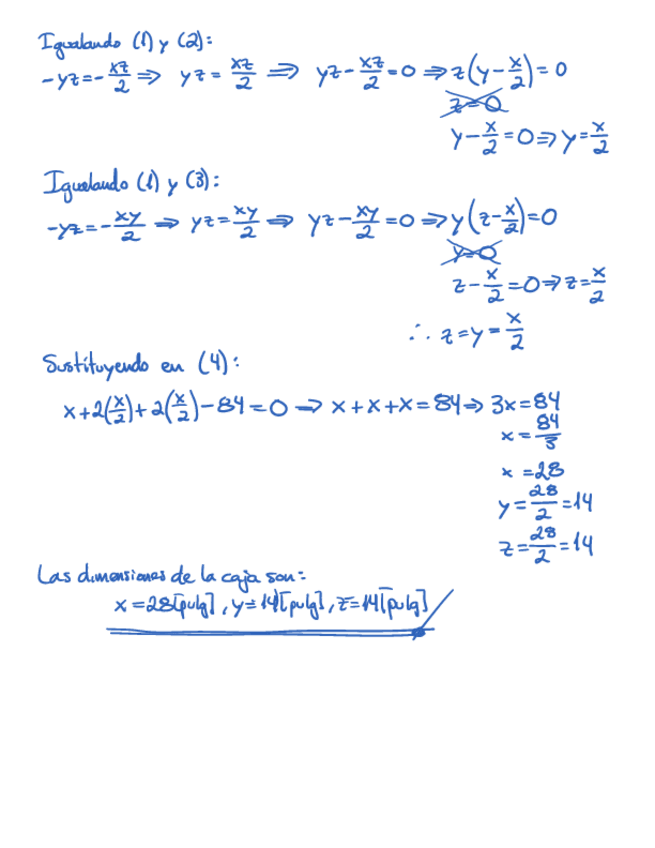 Igualando (1) y (2):
-yz = -xz/2 ⇒ yz = xz/2 ⇒ yz - xz/2 = 0 ⇒ z(y - x/2) = 0
z = 0
y - x/2 = 0 ⇒ y = x/2
Igualando (1) y (3):
-yz = -xy/2 ⇒ yz = xy/2 ⇒ yz - xy/2 = 0 ⇒ y(z - x/2) = 0
y = 0
z - x/2 = 0 ⇒ z = x/2
∴ z = y = x/2
Sustituyendo en (4):
x + 2(x/2) + 2(x/2) - 84 = 0 ⇒ x + x + x = 84 ⇒ 3x = 84
x = 84/3
x = 28
y = 28/2 = 14
z = 28/2 = 14
Las dimensiones de la caja son:
x = 28[pulg], y = 14[pulg], z = 14[pulg]